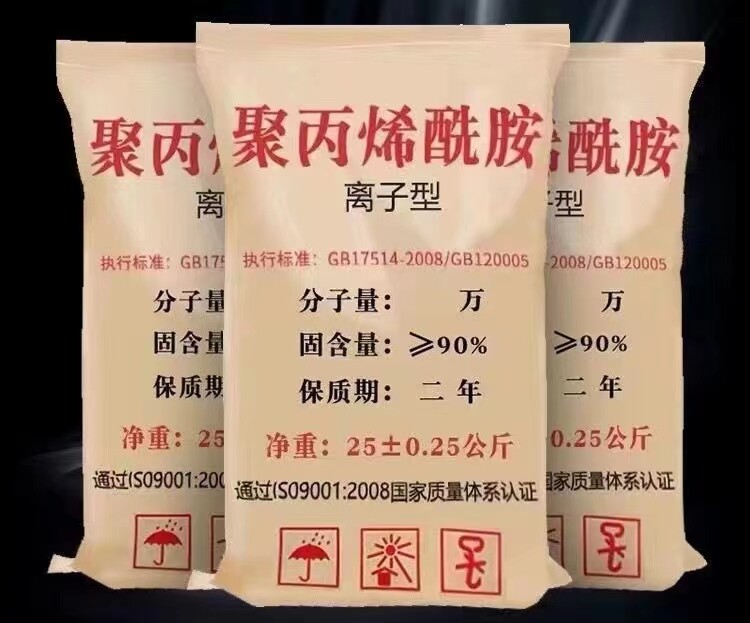 聚丙烯酰胺
离子型
执行标准：GB17514-2008/GB120005
分子量： 万
固含量：≥90%
保质期：二年
净重：25±0.25公斤
通过(S09001:2008国家质量体系认证
聚丙烯
离
执行标准：GB175
分子量
固含量
保质期
净重：25
通过(S09001:200
烯酰胺
子型
-2008/GB120005
万
≥90%
二年
±0.25公斤
2008国家质量体系认证